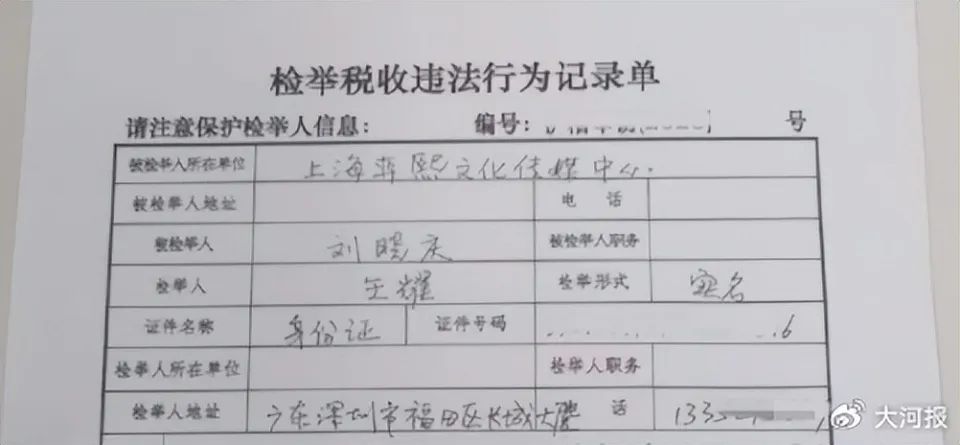 检举税收违法行为记录单
请注意保护检举人信息： 编号： 号
被检举人所在单位 上海 熙文化传媒中心.
被检举人地址 电话
被检举人 刘晓庆 被检举人职务
检举人 王耀 检举形式 实名
证件名称 身份证 证件号码 6
检举人所在单位 检举人职务
检举人地址 广东深圳市福田区长城大厦 话 133
大河报